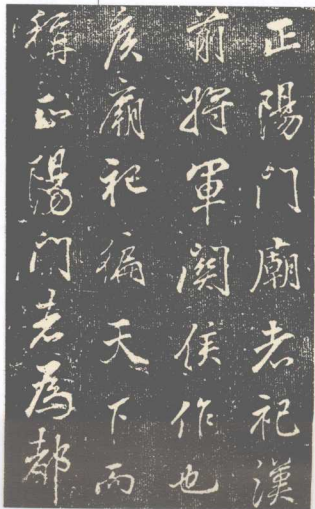 正陽门廟者祀漢
前将軍関侯作也
侯廟祀徧天下而
稱正陽门者為都